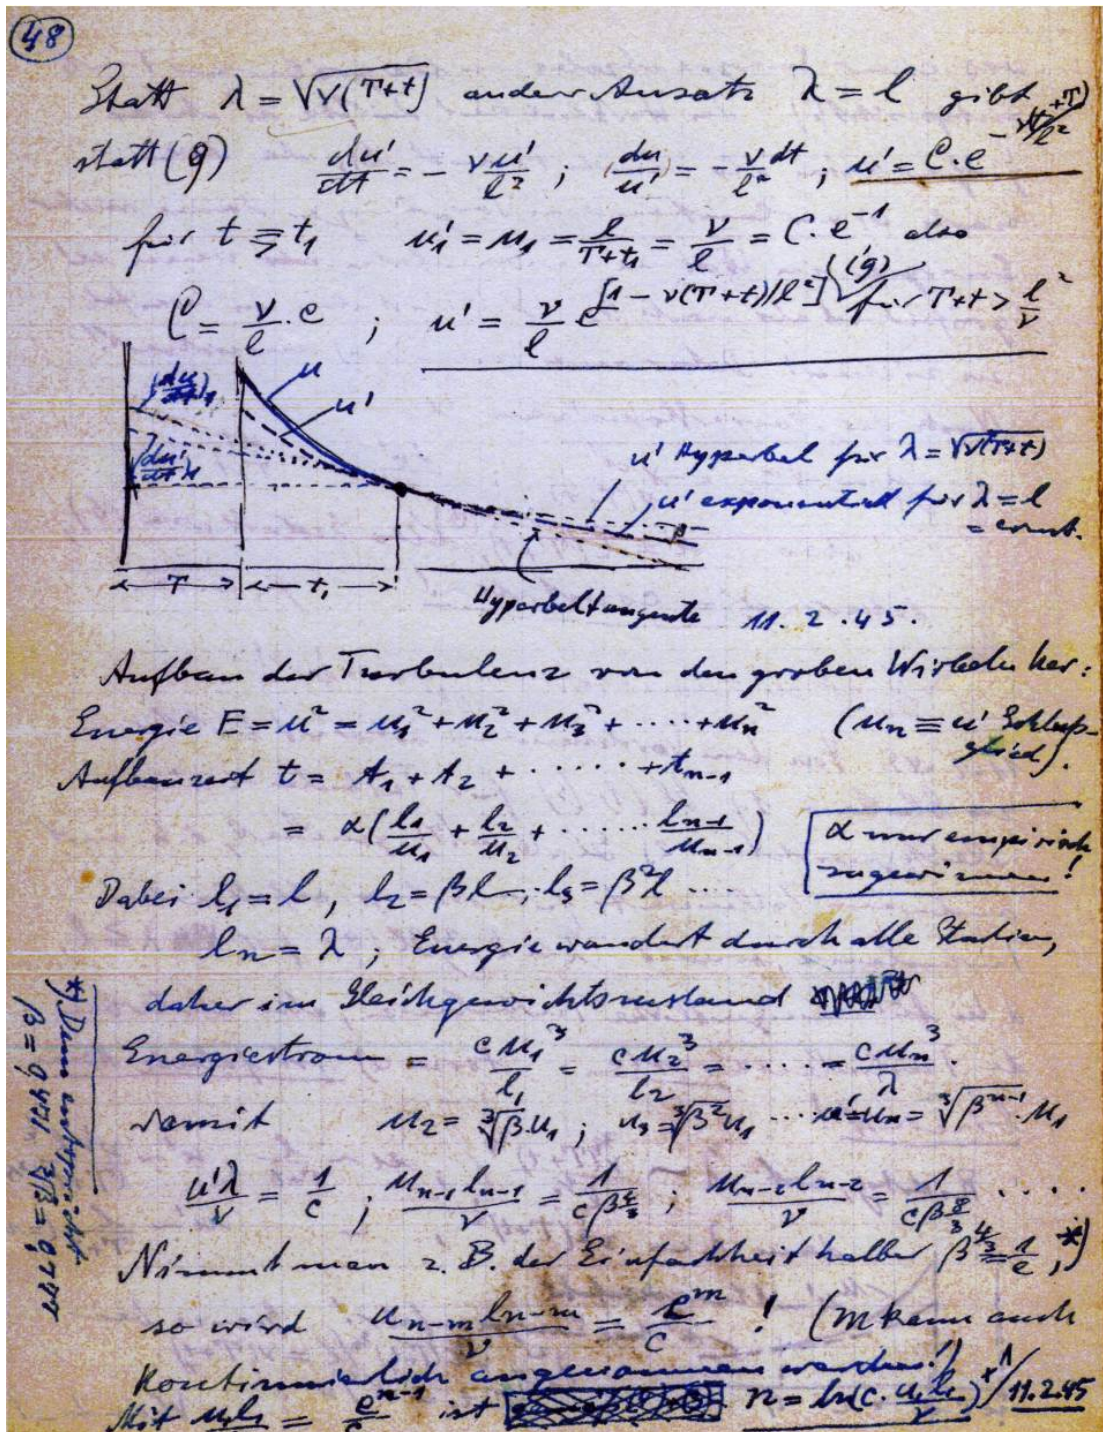 48
Statt λ = √ν(T+t) anderer Ansatz λ = l gibt
statt (9) du'/dt = - νu'/l² ; du'/u' = - ν/l² dt ; u' = C·e^(-ν(t+T)/l²)
für t ≧ t₁ u₁' = u₁ = l/(T+t₁) = ν/l = C·e⁻¹ also
C = ν/l · e ; u' = ν/l e^[1 - ν(T+t)/l²] (9') für T+t > l²/ν
(du/dt)₁
u
u'
(du'/dt)₁
u' Hyperbel für λ = √ν(T+t)
u' exponentiell für λ = l
= const.
T t₁
Hyperbeltangente 11. 2. 45.
Aufbau der Turbulenz von den groben Wirbeln her:
Energie E = u² = u₁² + u₂² + u₃² + ····· + uₙ² (uₙ ≡ u' Schluß-
glied).
Aufbauzeit t = t₁ + t₂ + ······ + tₙ₋₁
= α(l₁/u₁ + l₂/u₂ + ······ lₙ₋₁/uₙ₋₁)
α nur empirisch
zu gewinnen!
Dabei l₁ = l, l₂ = βl, l₃ = β²l ····
lₙ = λ ; Energie wandert durch alle Stadien,
daher im Gleichgewichtszustand
Energiestrom = cu₁³/l₁ = cu₂³/l₂ = ····· = cuₙ³/λ.
somit u₂ = ∛β·u₁ ; u₃ = ∛β² u₁ ···· u' = uₙ = ∛βⁿ⁻¹·u₁
u'λ/ν = 1/c ; uₙ₋₁lₙ₋₁/ν = 1/(cβ^(4/3)) ; uₙ₋₂lₙ₋₂/ν = 1/(cβ^(8/3)) ····
Nimmt man z. B. der Einfachheit halber β^(4/3) = 1/e, *)
so wird uₙ₋ₘlₙ₋ₘ/ν = eᵐ/c ! (m kann auch
kontinuierlich angenommen werden!)
Mit u₁l₁/ν = eⁿ⁻¹/c ist n = ln(c·u₁l₁/ν) + 1/ 11.2.45
*) Dem entspricht
β = 0,471 ∛β = 0,777